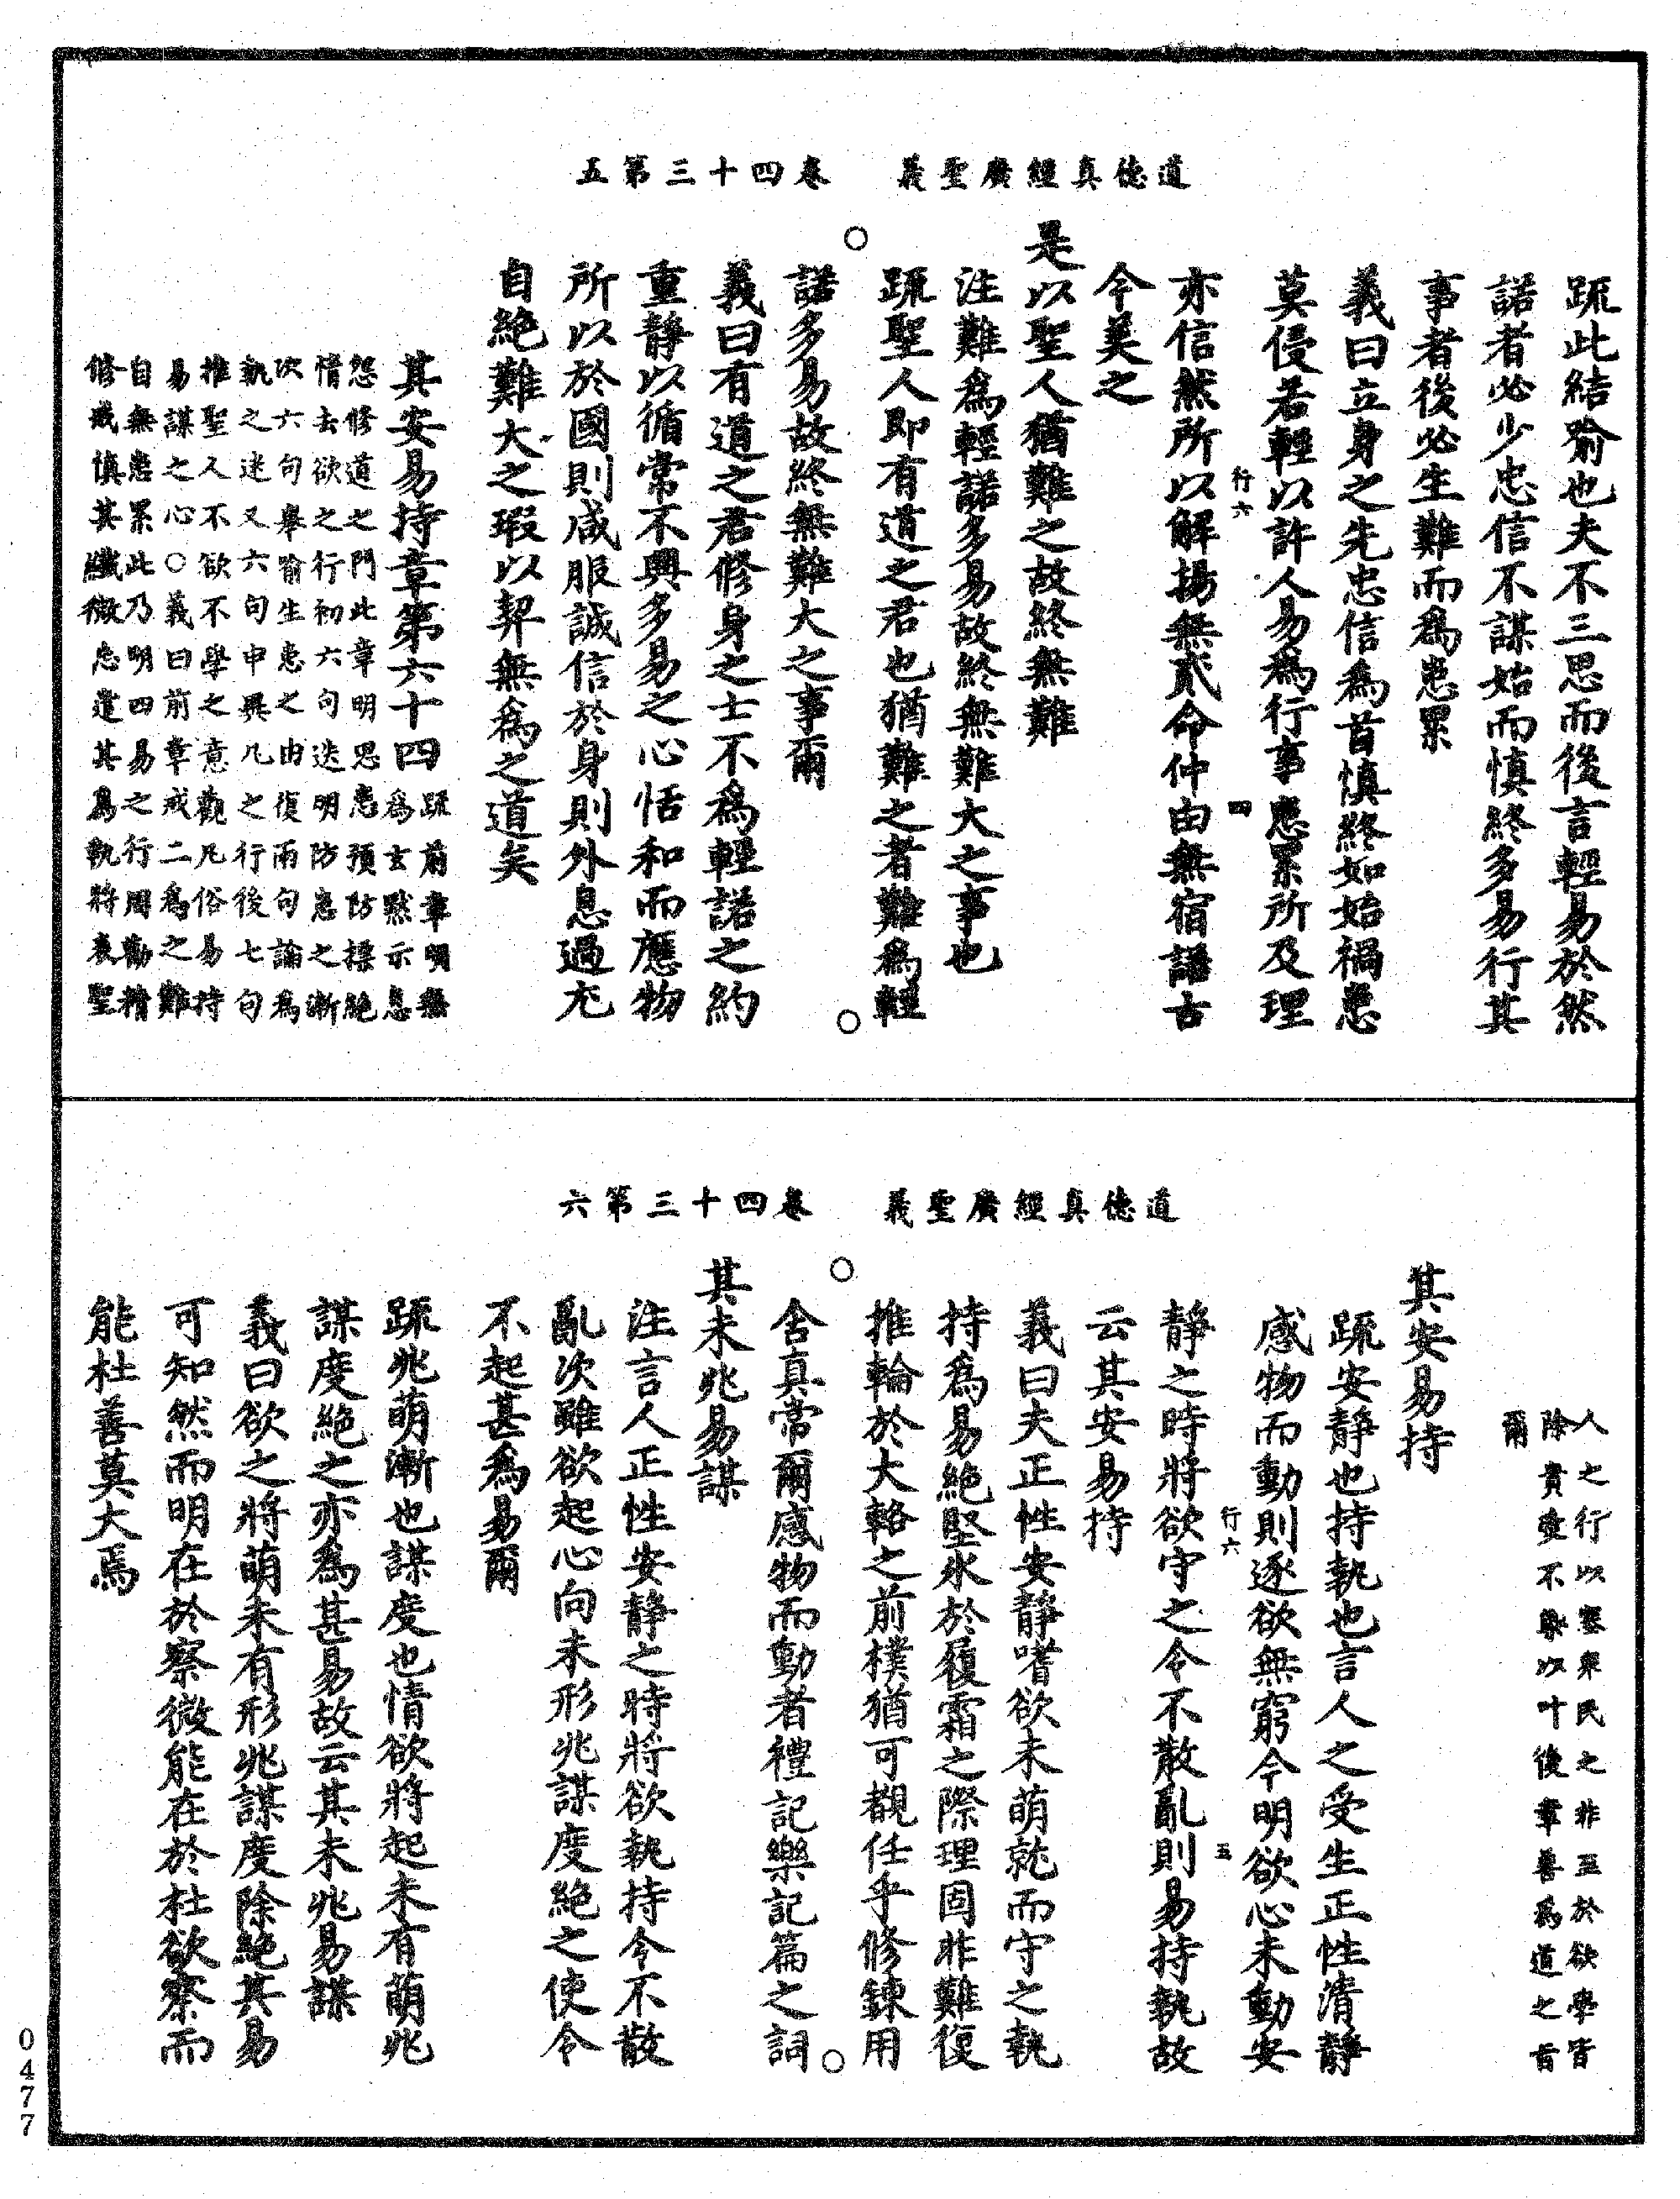 道德真經廣聖義　卷四十三第五
疏此結喻也夫不三思而後言輕易於然
諾者必少忠信不謀始而慎終多易行其
事者後必生難而為患累
義曰立身之先忠信為首慎終如始禍患
莫侵若輕以許人易為行事患累所及理
行六　四
亦信然所以解揚無貳命仲由無宿諾古
今美之
是以聖人猶難之故終無難
注難為輕諾多易故終無難大之事也
疏聖人即有道之君也猶難之者難為輕
○　○
諾多易故終無難大之事爾
義曰有道之君修身之士不為輕諾之約
重靜以循常不興多易之心恬和而應物
所以於國則咸服誠信於身則外息過尤
自絕難大之瑕以契無為之道矣
其安易持章第六十四疏前章明無
為玄默示息
怨修道之門此章明思患預防操絕
情去欲之行初六句迭明防患之漸
次六句舉喻生患之由復兩句論為
執之迷又六句申興凡之行後七句
推聖人不欲不學之意觀凡俗易持
易謀之心○義曰前章戒二為之難
自無患累此乃明四易之行周勸精
修戒慎其纖微忘遣其為執將表聖
道德真經廣聖義　卷四十三第六
人之行以塞眾民之非至於欲學皆
除貴愛不以叶後章善為道之旨
爾
其安易持
疏安靜也持執也言人之受生正性清靜
感物而動則逐欲無窮今明欲心未動安
行六　五
靜之時將欲守之令不散亂則易持執故
云其安易持
義曰夫正性安靜嗜欲未萌就而守之執
持為易絕堅冰於履霜之際理固非難復
推輪於大輅之前樸猶可覩任乎修鍊用
○　○
含真常爾感物而動者禮記樂記篇之詞
其未兆易謀
注言人正性安靜之時將欲執持令不散
亂次雖欲起心向未形兆謀度絕之使令
不起甚為易爾
疏兆萌漸也謀度也情欲將起未有萌兆
謀度絕之亦為甚易故云其未兆易謀
義曰欲之將萌未有形兆謀度除絕其易
可知然而明在於察微能在於杜欲察而
能杜善莫大焉
0477